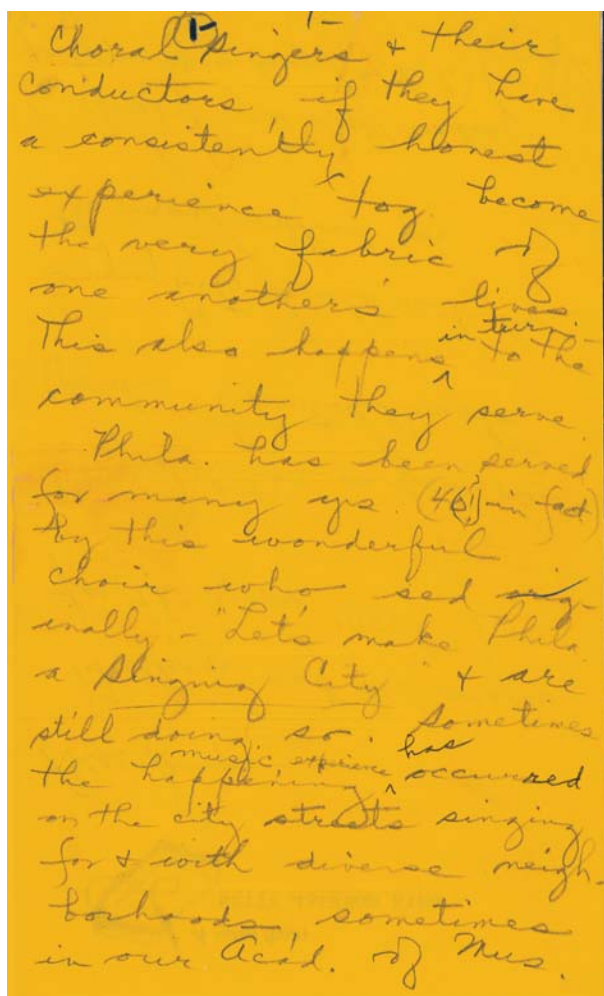 1-
Choral singers & their
conductors, if they have
a consistently honest
experience tog. become
the very fabric of
one anothers' lives.
This also happens in turn - to the
community they serve.
Phila. has been served
for many yrs. (46! - in fact)
by this wonderful
choir who sed orig-
inally - "Let's make Phila.
a Singing City" & are
still doing so. Sometimes
the happening music experience has occurred
on the city streets singing
for & with diverse neigh-
borhoods, sometimes
in our Acad. of Mus.